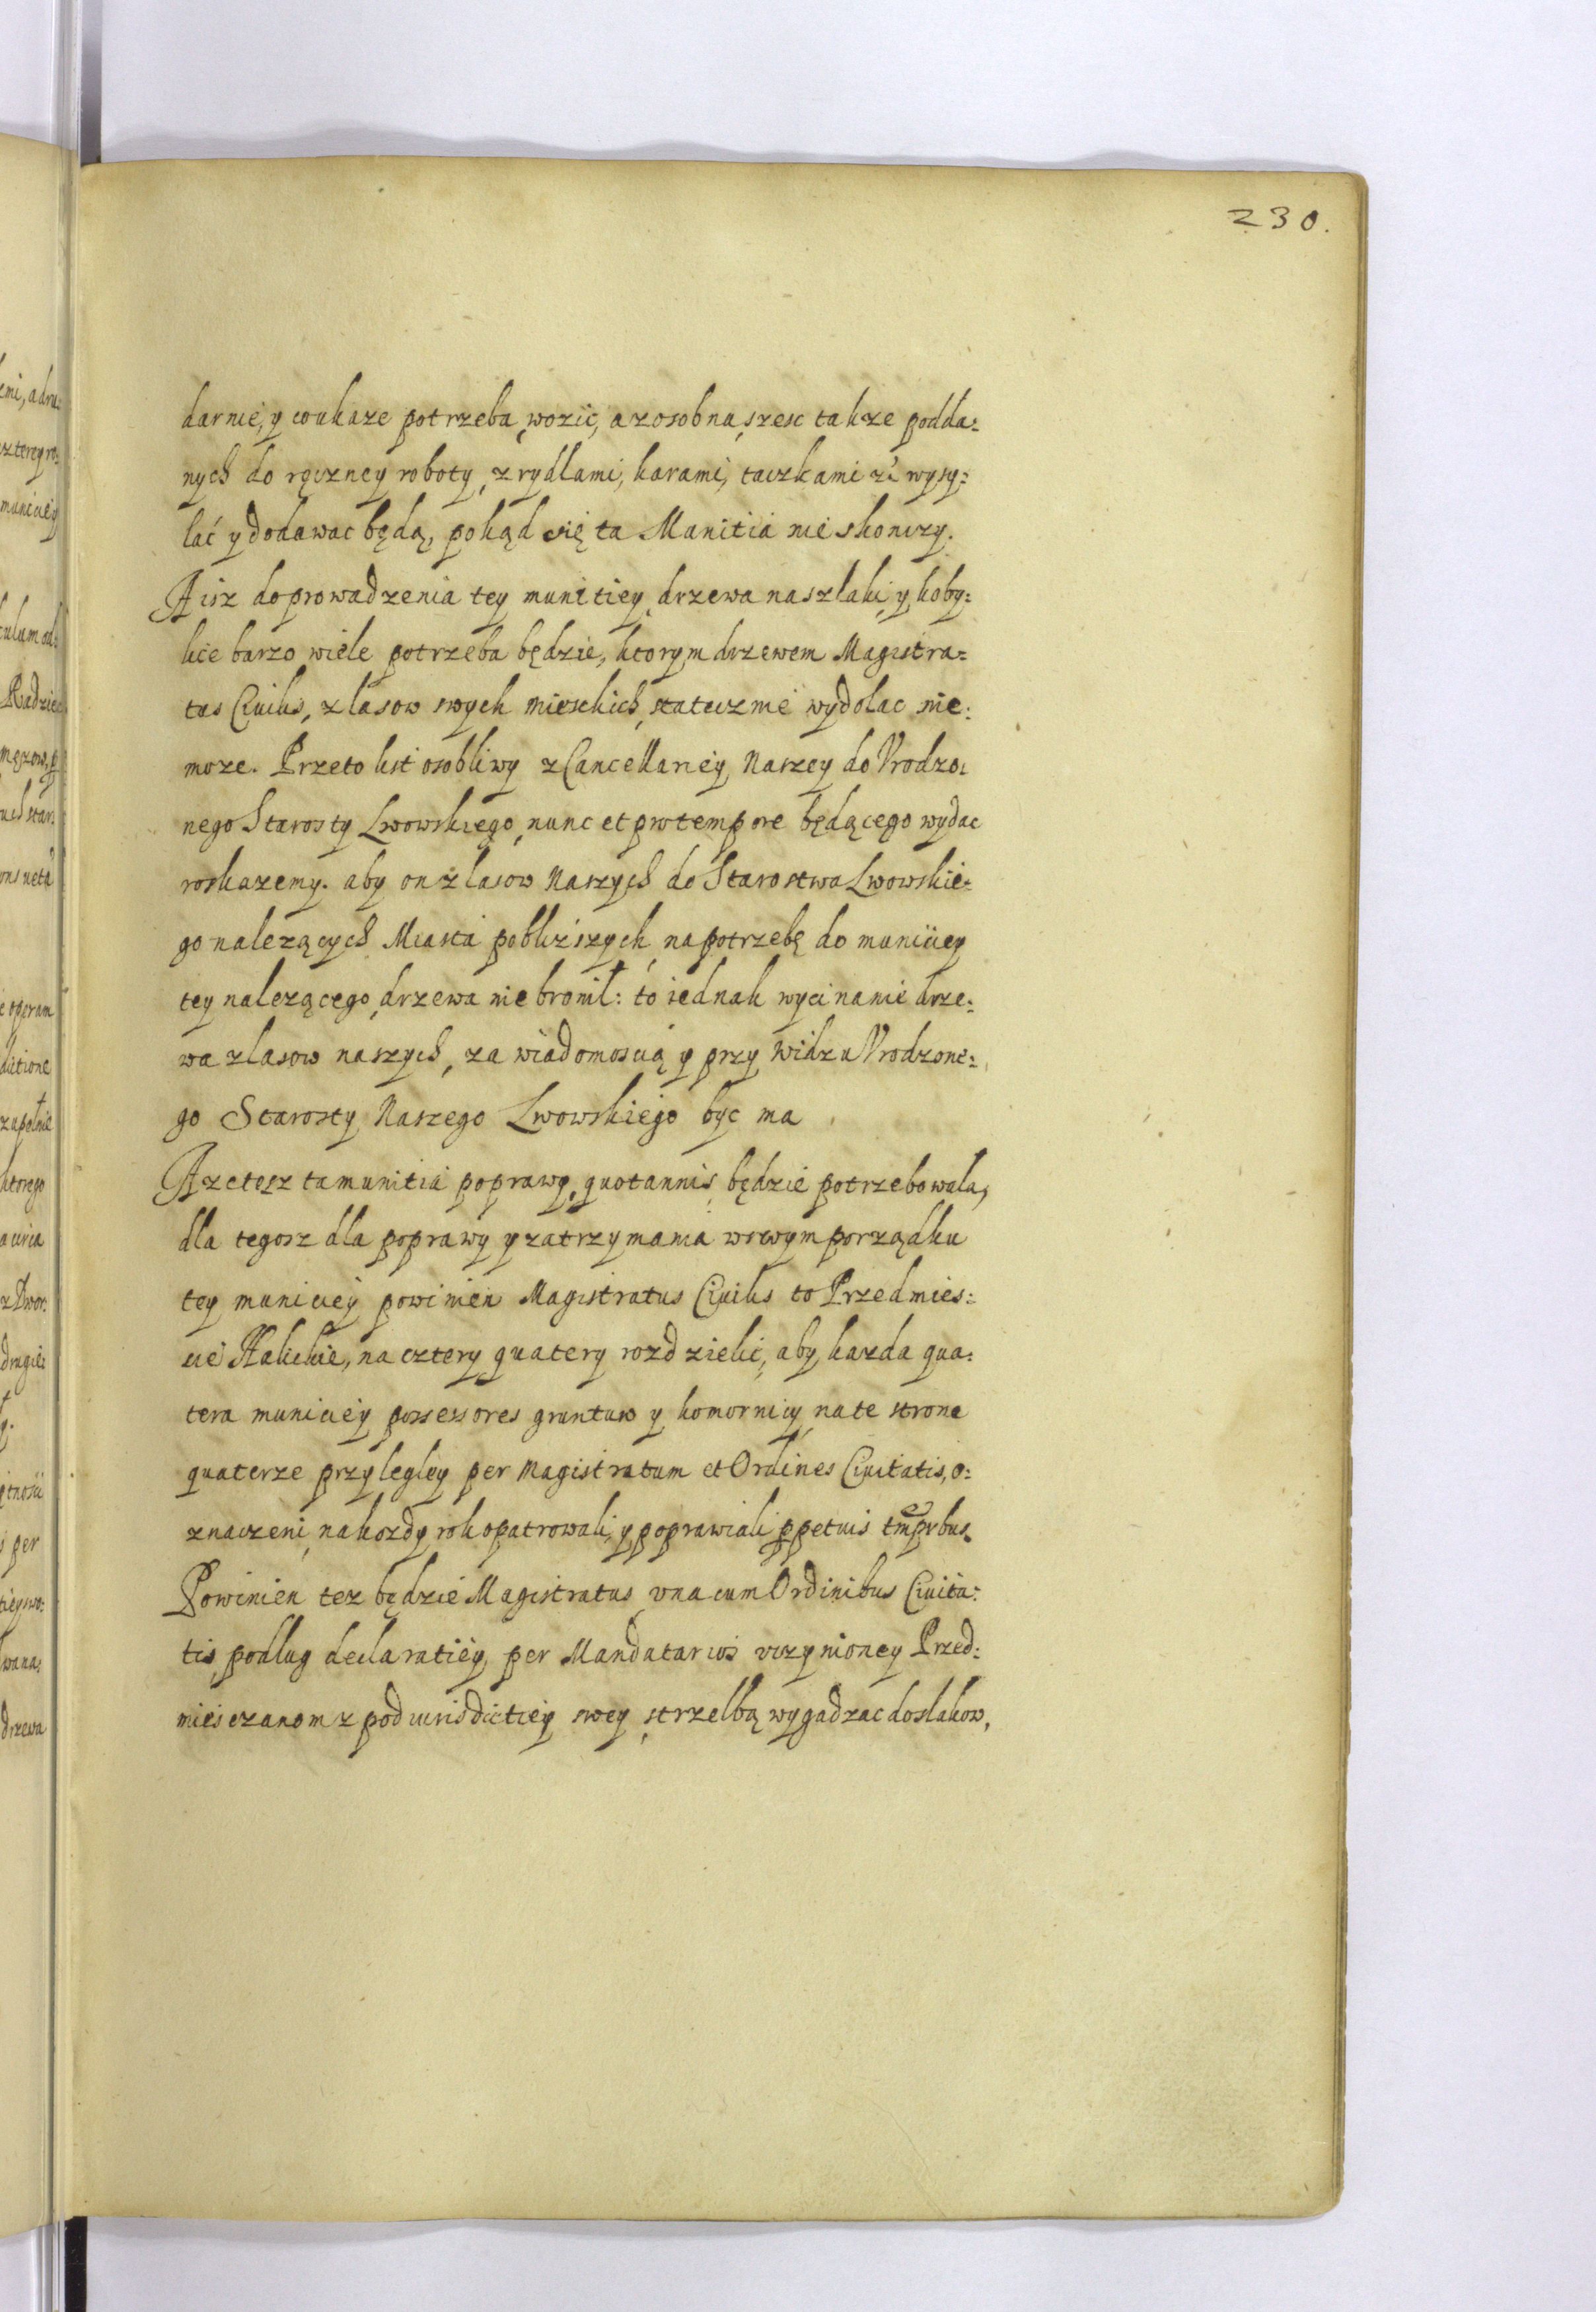 230.
darnie, y co ukaze potrzeba, wozic, a z osobna szesc takze podda:
nych do ręczney roboty, z rydlami, karami, taczkami wysy:
lać y dodawac będą, pokąd się ta Munitia nie skonczy.
A isz do prowadzenia tey munitiey drzewa na szlaki y koby:
lice barzo wiele potrzeba będzie, ktorym drzewem Magistra:
tus Ciuilis, z lasow swych mieskich, statecznie wydolac nie:
moze. Przeto list osobliwy z Cancellariey Naszey do Vrodzo:
nego Starosty Lwowskiego, nunc et pro tempore będącego wydac
roskazemy. aby on z lasow Naszych do Starostwa Lwowskie:
go nalezących Miasta pobliższych, na potrzebę do municiey
tey nalezącego, drzewa nie bronił: to iednak wycinanie drze:
wa z lasow naszych, za wiadomoscią y przy widzu Vrodzone:
go Starosty Naszego Lwowskiego byc ma
A ze tesz ta munitia poprawy, quotannis będzie potrzebowala,
dla tegosz dla poprawy y zatrzymania w swym porządku
tey municiey powinien Magistratus Ciuilis to Przedmies:
cie Halickie, na cztery quatery rozdzielic, aby kazda qua:
tera municiey possessores gruntuw y komornicy na te strone
quaterze przylegley per Magistratum et Ordines Ciuitatis, o:
znaczeni, na kozdy rok opatrowali, y poprawiali ppetuis tmprbus.
Powinien tez będzie Magistratus vna cum Ordinibus Ciuita:
tis, podlug declaratiey, per Mandatarios vczynioney Przed:
miesczanom z pod iurisdictiey swey strzelbą wygadzac do slakow,